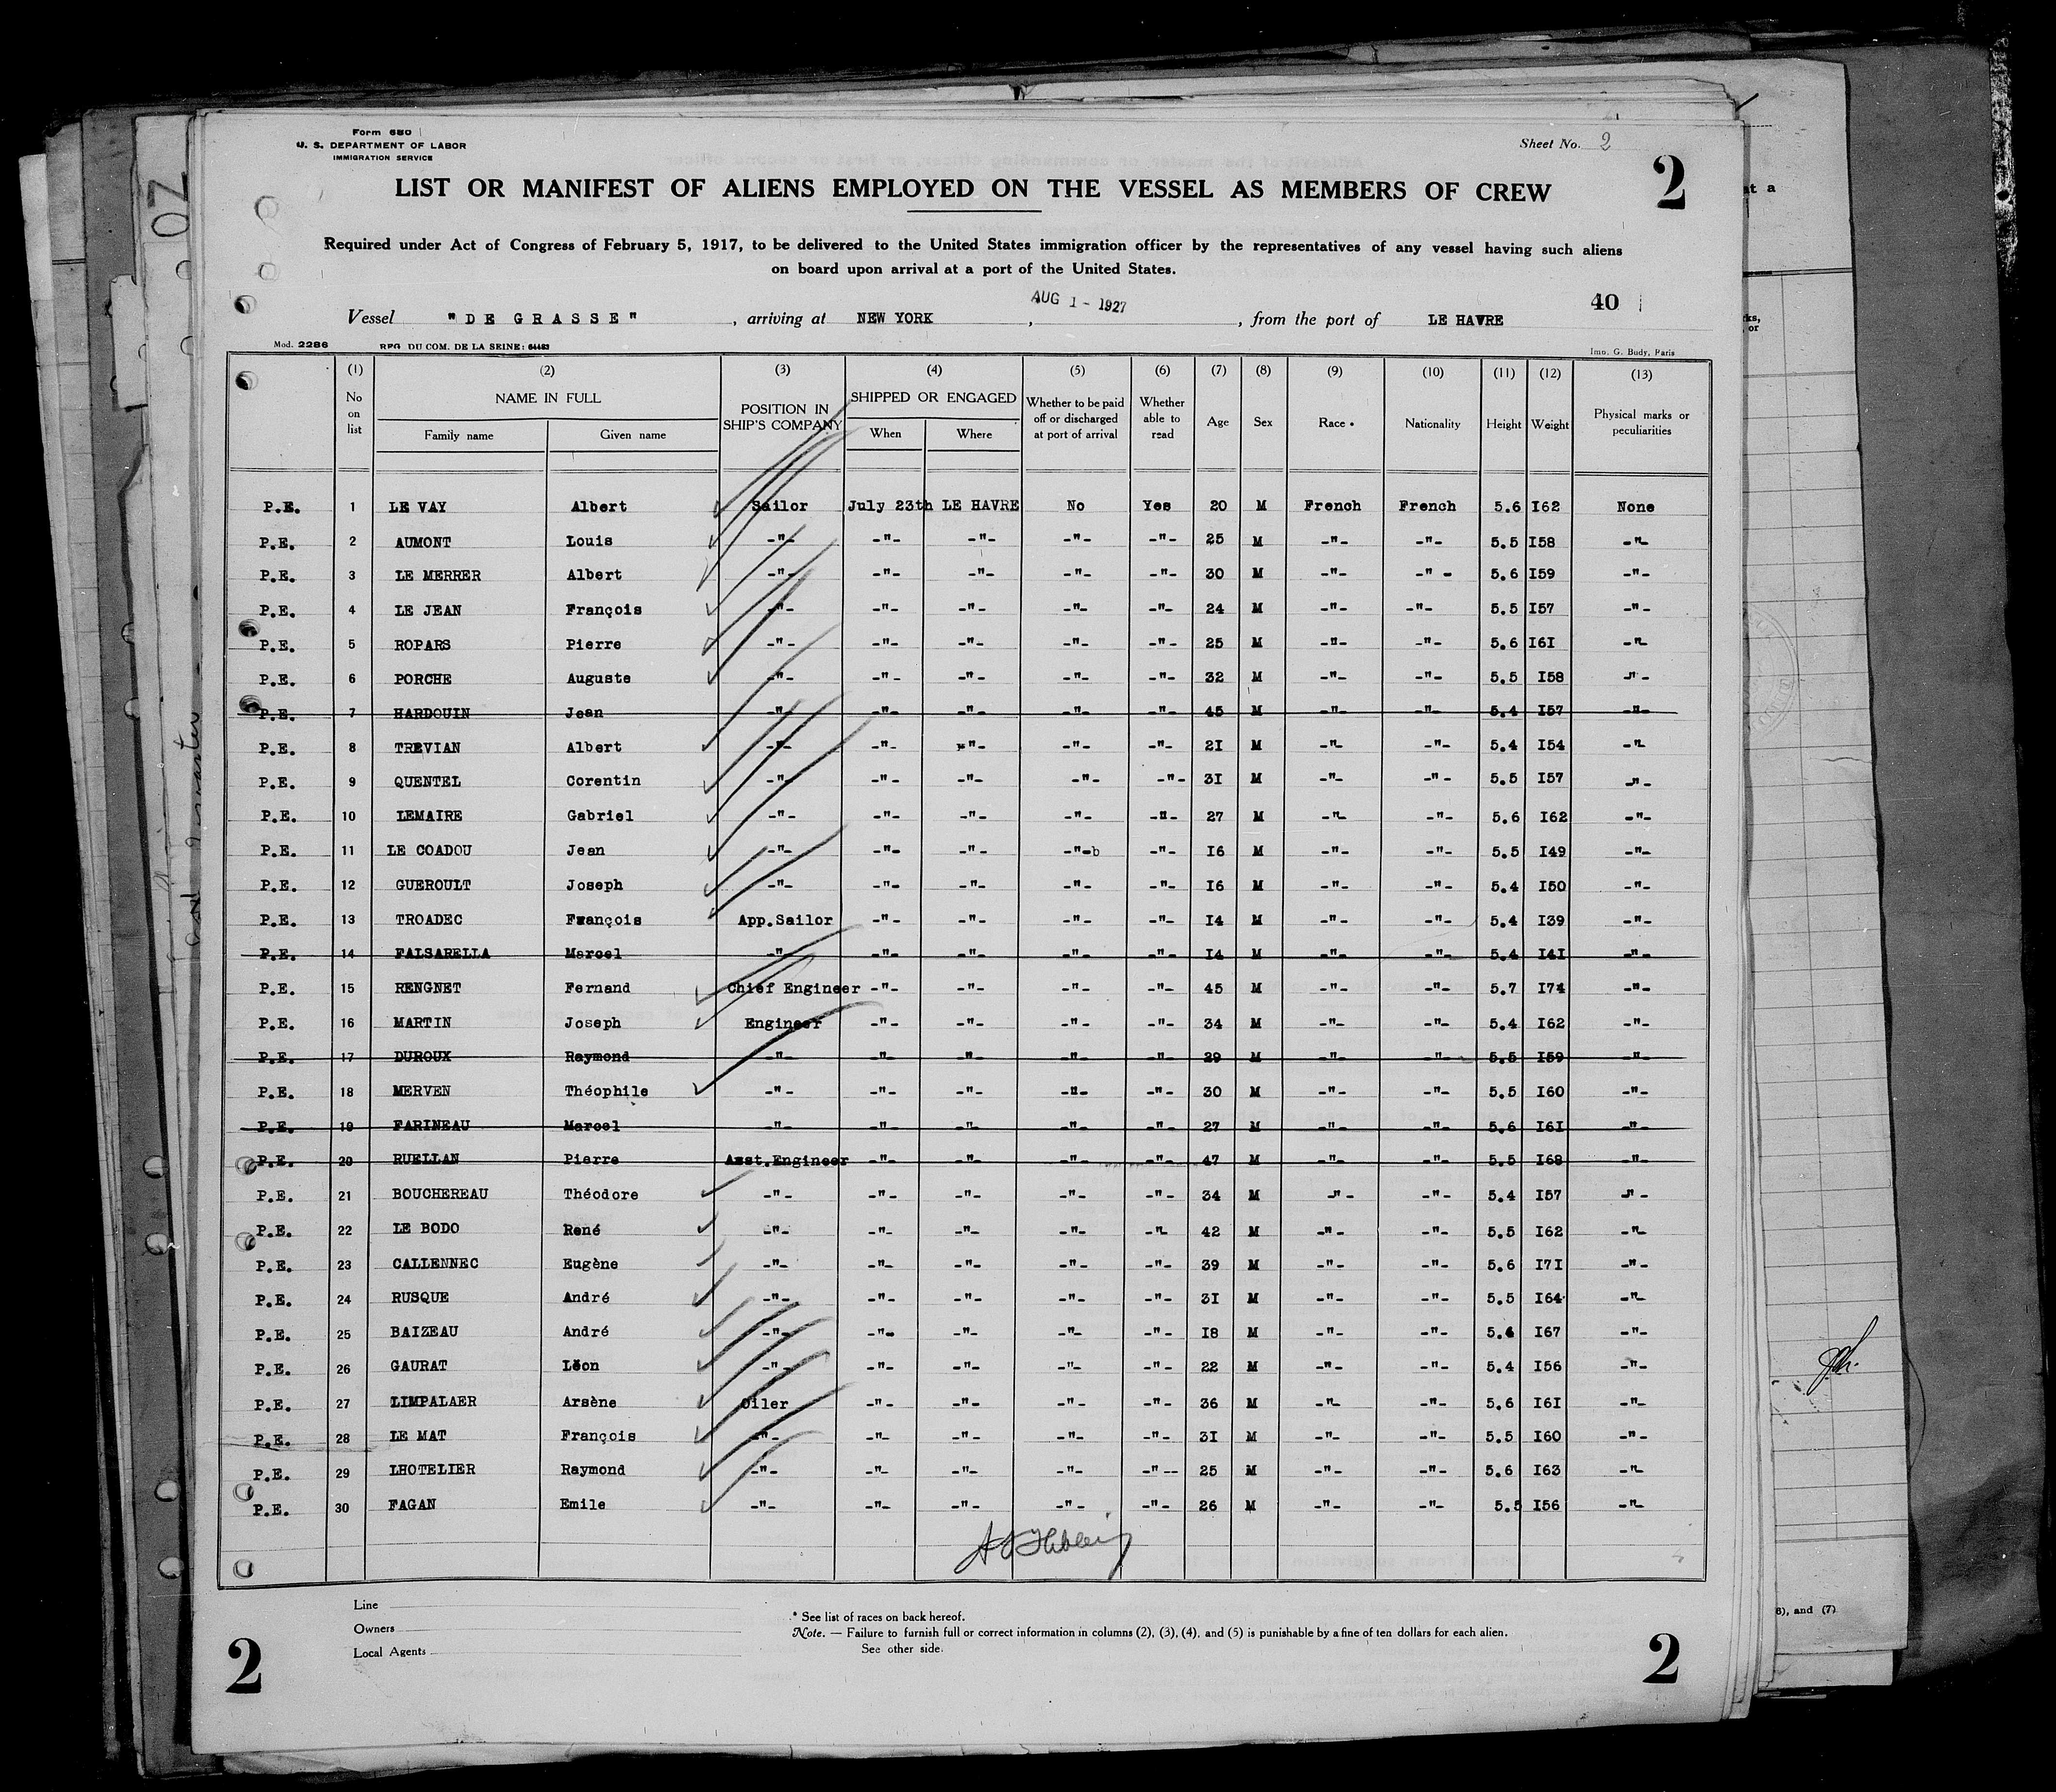 Form 680
U. S. DEPARTMENT OF LABOR
IMMIGRATION SERVICE
Sheet No. 2
2
LIST OR MANIFEST OF ALIENS EMPLOYED ON THE VESSEL AS MEMBERS OF CREW
Required under Act of Congress of February 5, 1917, to be delivered to the United States immigration officer by the representatives of any vessel having such aliens
on board upon arrival at a port of the United States.
40
Vessel "DE GRASSE", arriving at NEW YORK, AUG 1 - 1927, from the port of LE HAVRE
Mod. 2286 REG. DU COM. DE LA SEINE: 64483 Imp. G. Budy, Paris
(1) (2) (3) (4) (5) (6) (7) (8) (9) (10) (11) (12) (13)
No on list NAME IN FULL Family name Given name POSITION IN SHIP'S COMPANY SHIPPED OR ENGAGED When Where Whether to be paid off or discharged at port of arrival Whether able to read Age Sex Race * Nationality Height Weight Physical marks or peculiarities
P.E. 1 LE VAY Albert Sailor July 23th LE HAVRE No Yes 20 M French French 5.6 I62 None
P.E. 2 AUMONT Louis -"- -"- -"- -"- -"- 25 M -"- -"- 5.5 I58 -"-
P.E. 3 LE MERRER Albert -"- -"- -"- -"- -"- 30 M -"- -"- 5.6 I59 -"-
P.E. 4 LE JEAN François -"- -"- -"- -"- -"- 24 M -"- -"- 5.5 I57 -"-
P.E. 5 ROPARS Pierre -"- -"- -"- -"- -"- 25 M -"- -"- 5.6 I6I -"-
P.E. 6 PORCHE Auguste -"- -"- -"- -"- -"- 32 M -"- -"- 5.5 I58 -"-
P.E. 7 HARDOUIN Jean -"- -"- -"- -"- -"- 45 M -"- -"- 5.4 I57 -"-
P.E. 8 TREVIAN Albert -"- -"- -"- -"- -"- 2I M -"- -"- 5.4 I54 -"-
P.E. 9 QUENTEL Corentin -"- -"- -"- -"- -"- 3I M -"- -"- 5.5 I57 -"-
P.E. 10 LEMAIRE Gabriel -"- -"- -"- -"- -"- 27 M -"- -"- 5.6 I62 -"-
P.E. 11 LE COADOU Jean -"- -"- -"- -"-b -"- I6 M -"- -"- 5.5 I49 -"-
P.E. 12 GUEROULT Joseph -"- -"- -"- -"- -"- I6 M -"- -"- 5.4 I50 -"-
P.E. 13 TROADEC François App.Sailor -"- -"- -"- -"- I4 M -"- -"- 5.4 I39 -"-
P.E. 14 FALSARELLA Marcel -"- -"- -"- -"- -"- I4 M -"- -"- 5.4 I4I -"-
P.E. 15 RENGNET Fernand Chief Engineer -"- -"- -"- -"- 45 M -"- -"- 5.7 I74 -"-
P.E. 16 MARTIN Joseph Engineer -"- -"- -"- -"- 34 M -"- -"- 5.4 I62 -"-
P.E. 17 DUROUX Raymond -"- -"- -"- -"- -"- 29 M -"- -"- 5.5 I59 -"-
P.E. 18 MERVEN Théophile -"- -"- -"- -"- -"- 30 M -"- -"- 5.5 I60 -"-
P.E. 19 FARINEAU Marcel -"- -"- -"- -"- -"- 27 M -"- -"- 5.6 I6I -"-
P.E. 20 RUELLAN Pierre Asst.Engineer -"- -"- -"- -"- 47 M -"- -"- 5.5 I68 -"-
P.E. 21 BOUCHEREAU Théodore -"- -"- -"- -"- -"- 34 M -"- -"- 5.4 I57 -"-
P.E. 22 LE BODO René -"- -"- -"- -"- -"- 42 M -"- -"- 5.5 I62 -"-
P.E. 23 CALLENNEC Eugène -"- -"- -"- -"- -"- 39 M -"- -"- 5.6 I7I -"-
P.E. 24 RUSQUE André -"- -"- -"- -"- -"- 3I M -"- -"- 5.5 I64 -"-
P.E. 25 BAIZEAU André -"- -"- -"- -"- -"- I8 M -"- -"- 5.4 I67 -"-
P.E. 26 GAURAT Léon -"- -"- -"- -"- -"- 22 M -"- -"- 5.4 I56 -"-
P.E. 27 LIMPALAER Arsène Oiler -"- -"- -"- -"- 36 M -"- -"- 5.6 I6I -"-
P.E. 28 LE MAT François -"- -"- -"- -"- -"- 3I M -"- -"- 5.5 I60 -"-
P.E. 29 LHOTELIER Raymond -"- -"- -"- -"- -"-- 25 M -"- -"- 5.6 I63 -"-
P.E. 30 FAGAN Emile -"- -"- -"- -"- -"- 26 M -"- -"- 5.5 I56 -"-
Line
Owners
Local Agents
* See list of races on back hereof.
Note. — Failure to furnish full or correct information in columns (2), (3), (4), and (5) is punishable by a fine of ten dollars for each alien.
See other side.
2
2
at a
or
6), and (7)